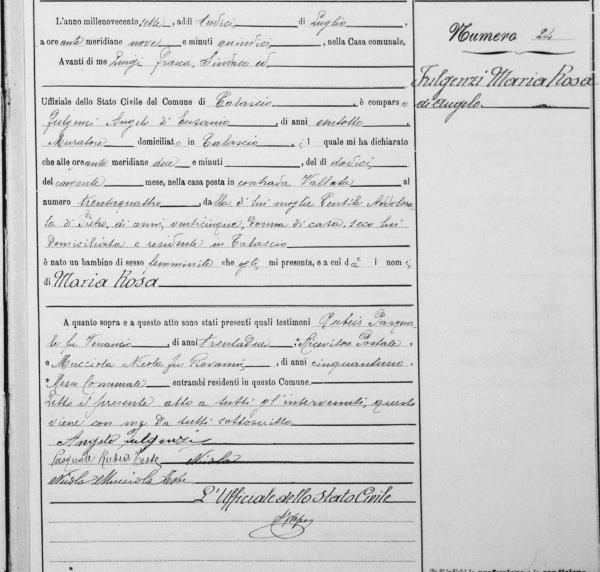 L'anno millenovecento sette, addì tredici di Luglio
a ore ante meridiane nove e minuti quindici, nella Casa comunale.
Avanti di me Luigi Frasca, Sindaco ed
Uffiziale dello Stato Civile del Comune di Colascio, è comparso
Fulgenzi Angelo di Eusanio, di anni ventotto
Muratore domiciliato in Calascio, il quale mi ha dichiarato
che alle ore ante meridiane due e minuti, del dì dodici
del corrente mese, nella casa posta in contrada Vallata al
numero trentaquattro, dalla di lui moglie Gentile Addolora-
ta di Pietro, di anni venticinque, donna di casa, seco lui
domiciliata e residente in Calascio
è nato un bambino di sesso femminile che egli mi presenta, e a cui dà i nomi
di Maria Rosa
A quanto sopra e a questo atto sono stati presenti quali testimoni Rubeis Pasqua-
le fu Venanzio, di anni trentadue, Ricevitore Postale
e Mucciola Nicola fu Giovanni, di anni cinquantuno
Messo Comunale entrambi residenti in questo Comune.
Letto il presente atto a tutti gl'intervenuti, questo
viene con me da tutti sottoscritto
Angelo Fulgenzi
Pasquale Rubeis Teste Nicola
Nicola Mucciola Teste
L'Ufficiale dello Stato Civile
Numero 24
Fulgenzi Maria Rosa
di Angelo